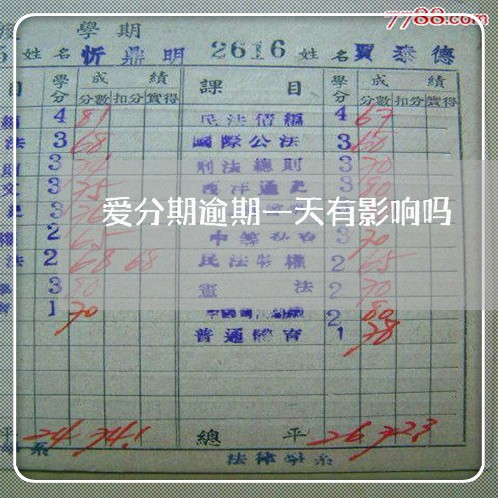 7788.com
學期
姓名 忻鼎明 2616 姓名 賈泰德
目 學分 成績 課目 學分 成績
分數 扣分 實得 分數 扣分 實得
4 81 民法債編 4 67
法 3 68 國際公法 3 60
3 刑法總則 3 70
3 75 西洋通史 3 80
愛分期逾期一天有影响吗
2 65 3 70
法 2 68 68 民法物權 2 65
3 80 憲法 2 70
1 70 2 80
普通體育 1 78
平 24 74.1 總平 26 72.3
系 法律學系